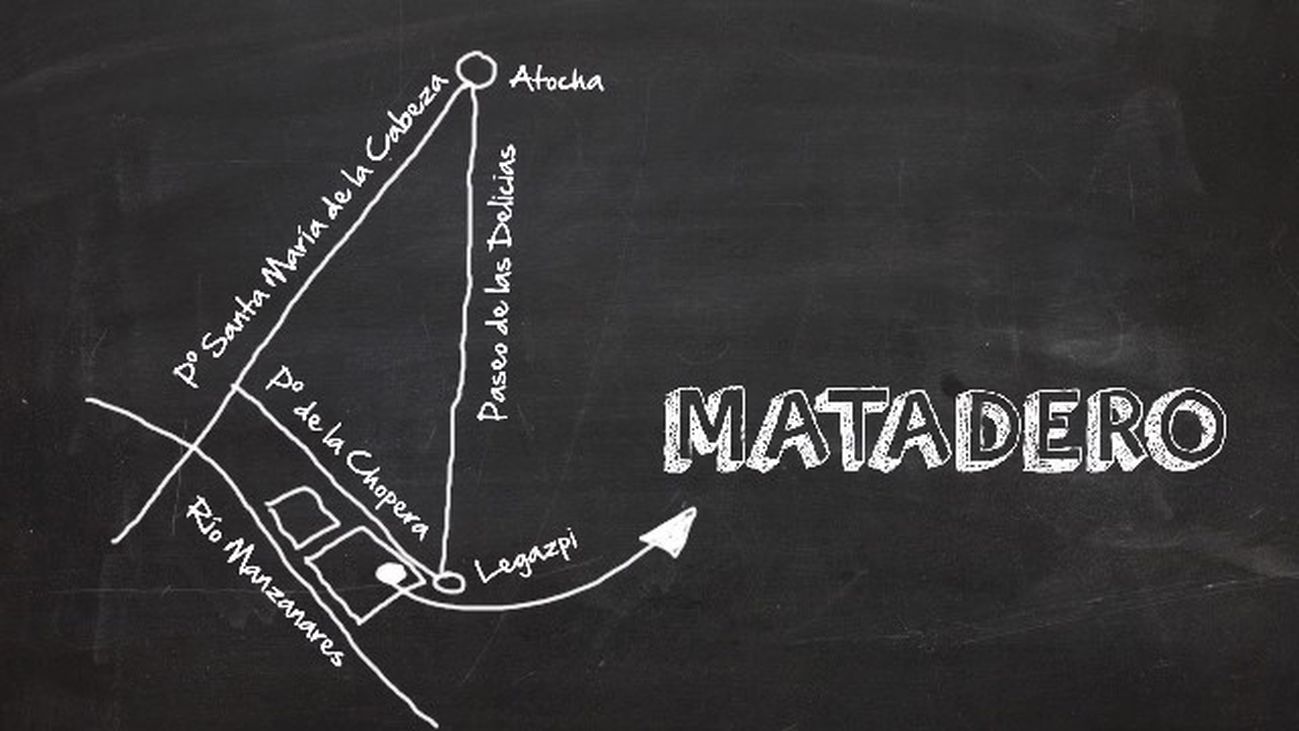 Atocha
Pº Santa María de la Cabeza
Paseo de las Delicias
Pº de la Chopera
MATADERO
Legazpi
Río Manzanares